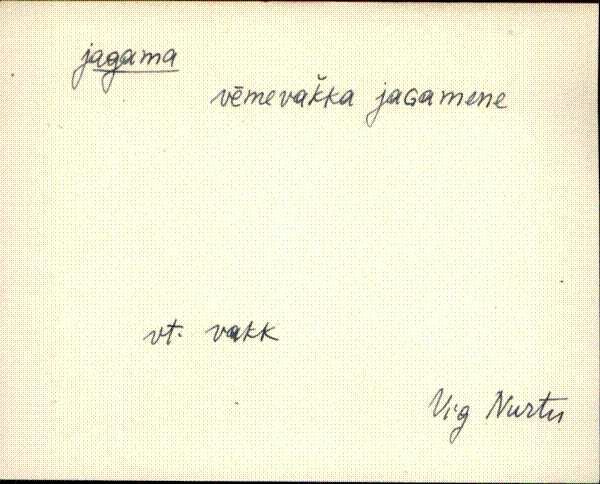 jagama
vēmevak̆ka jaGamene
vt. vakk
Vig Nurtu